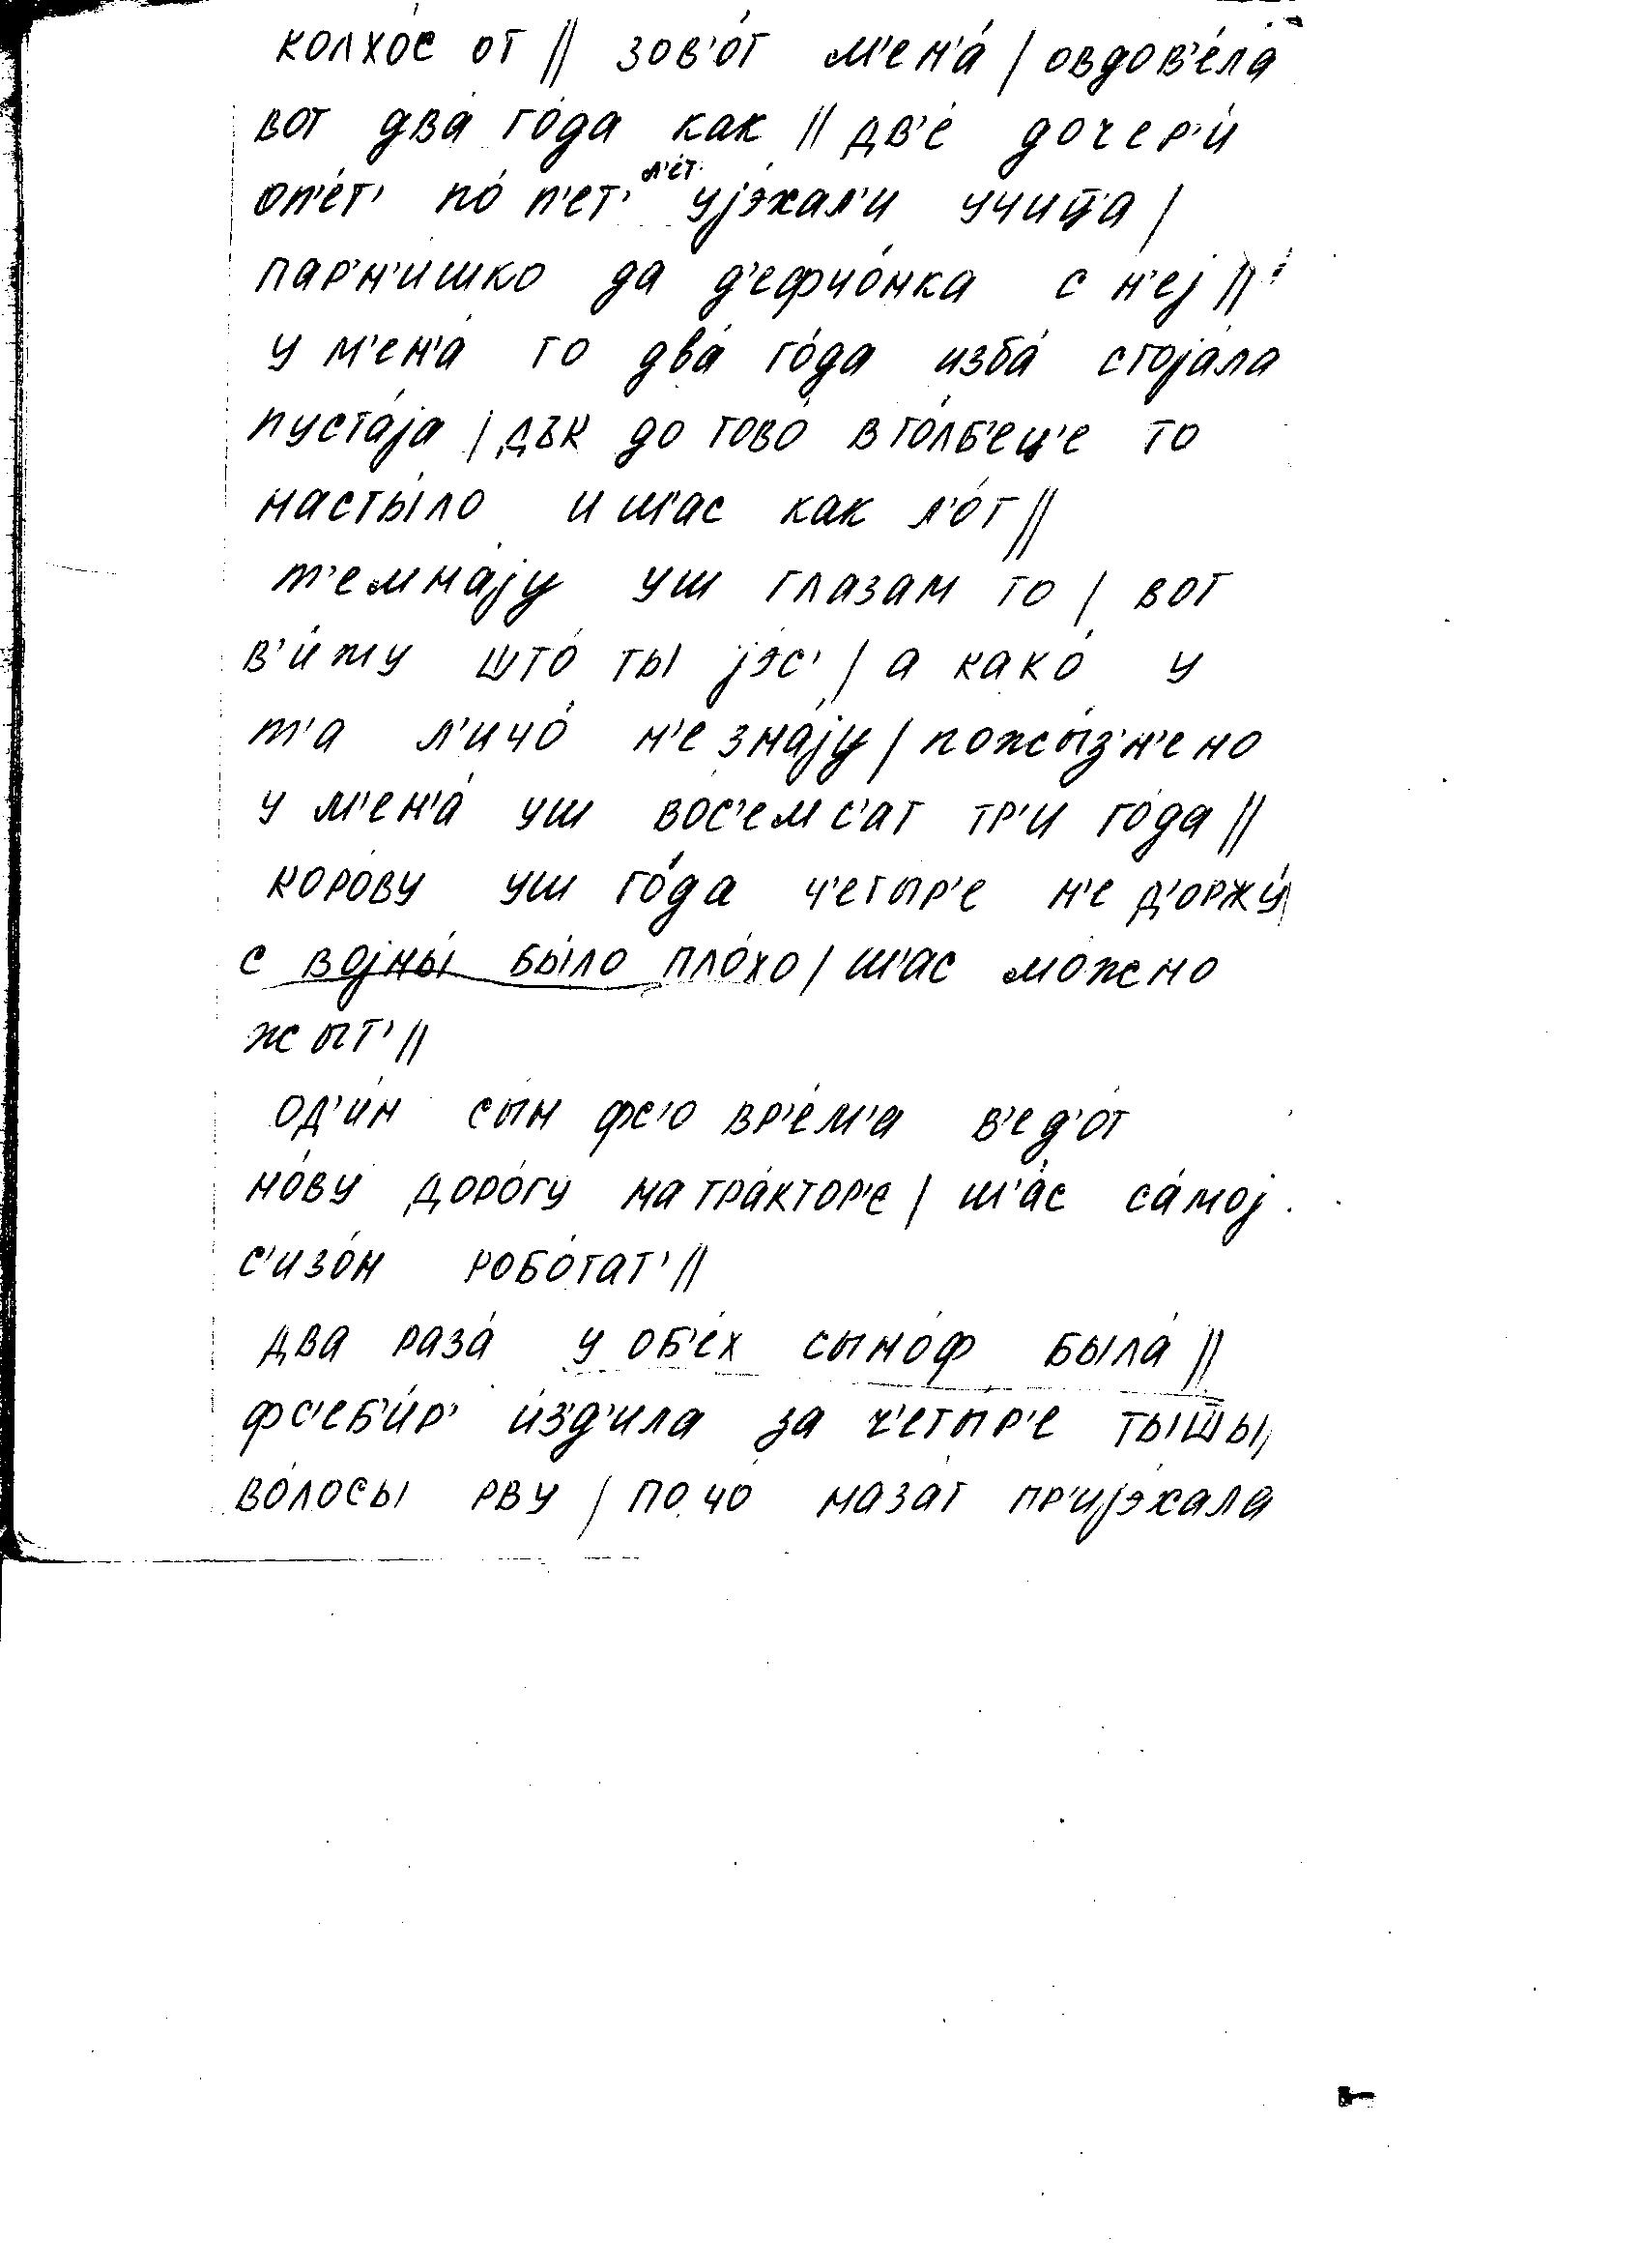 колхо́с от || зов'о́т м'ен'а́ | овдов'е́ла
вот два́ го́да как || дв'е́ дочер'и́
оп'е́т' по́ п'ет' л'е́т. уjэ́хал'и учи́ц̄а |
пар'н'и́шко да д'ефчо́нка с н'еj ||
у м'ен'а́ то два́ го́да изба́ стоjа́ла
пуста́jа | дък до тово́ в го́лб'ец'е то
насты́ло и ш'ас как л'о́т ||
т'емна́jу уш глаза́м то | вот
в'и́жу што́ ты jэс' | а како́ у
т'а л'ичо́ н'е зна́jу | пожы́з'н'ено
у м'ен'а́ уш во́с'емс'ат тр'и го́да ||
коро́ву уш го́да ч'еты́р'е н'е д'оржу́ |
с воjны́ бы́ло пло́хо | ш'ас мо́жно
жыт' ||
од'и́н сы́н фс'о вр'е́м'а в'ед'о́т
но́ву доро́гу на тра́ктор'е | ш'а́с са́моj
с'изо́н робо́тат' ||
два раза́ у об'е́х сыно́ф была́ ||
фс'еб'и́р' и́з'д'ила за ч'еты́р'е ты́ш̄ы,
во́лосы рву | по чо́ наза́т пр'иjэ́хала